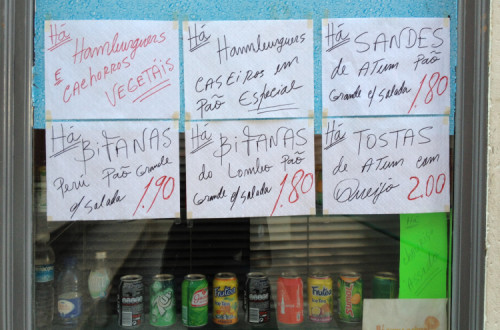 Há
Hamburguers
E
Cachorros
Vegetáis
Há
Hamburguers
Caseiros em
Pão Especial
Há SANDES
de Atum Pão
Grande c/ Salada 1.80
Há
BiTANAS
Perú Pão Grande
c/ Salada 1.90
Há BiTANAS
do Lombo Pão
Grande c/ Salada 1.80
Há TOSTAS
de Atum com
Queijo 2.00
Há